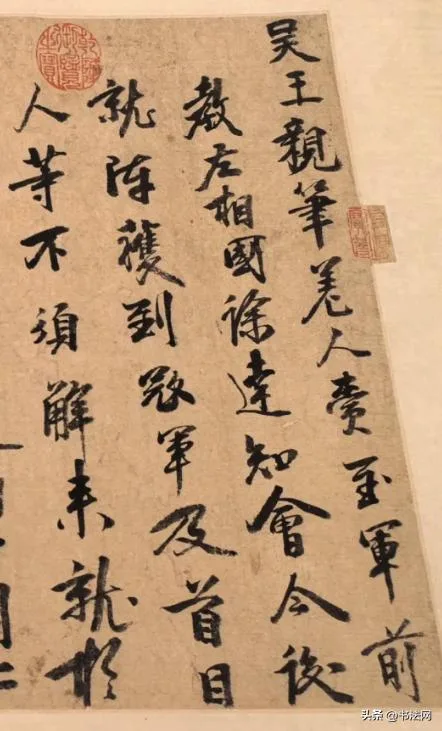 吴王親筆差人賫至軍前
教左相國徐達知會今後
就陣獲到寇軍及首目
人等不須解来就於
头条 @书法网